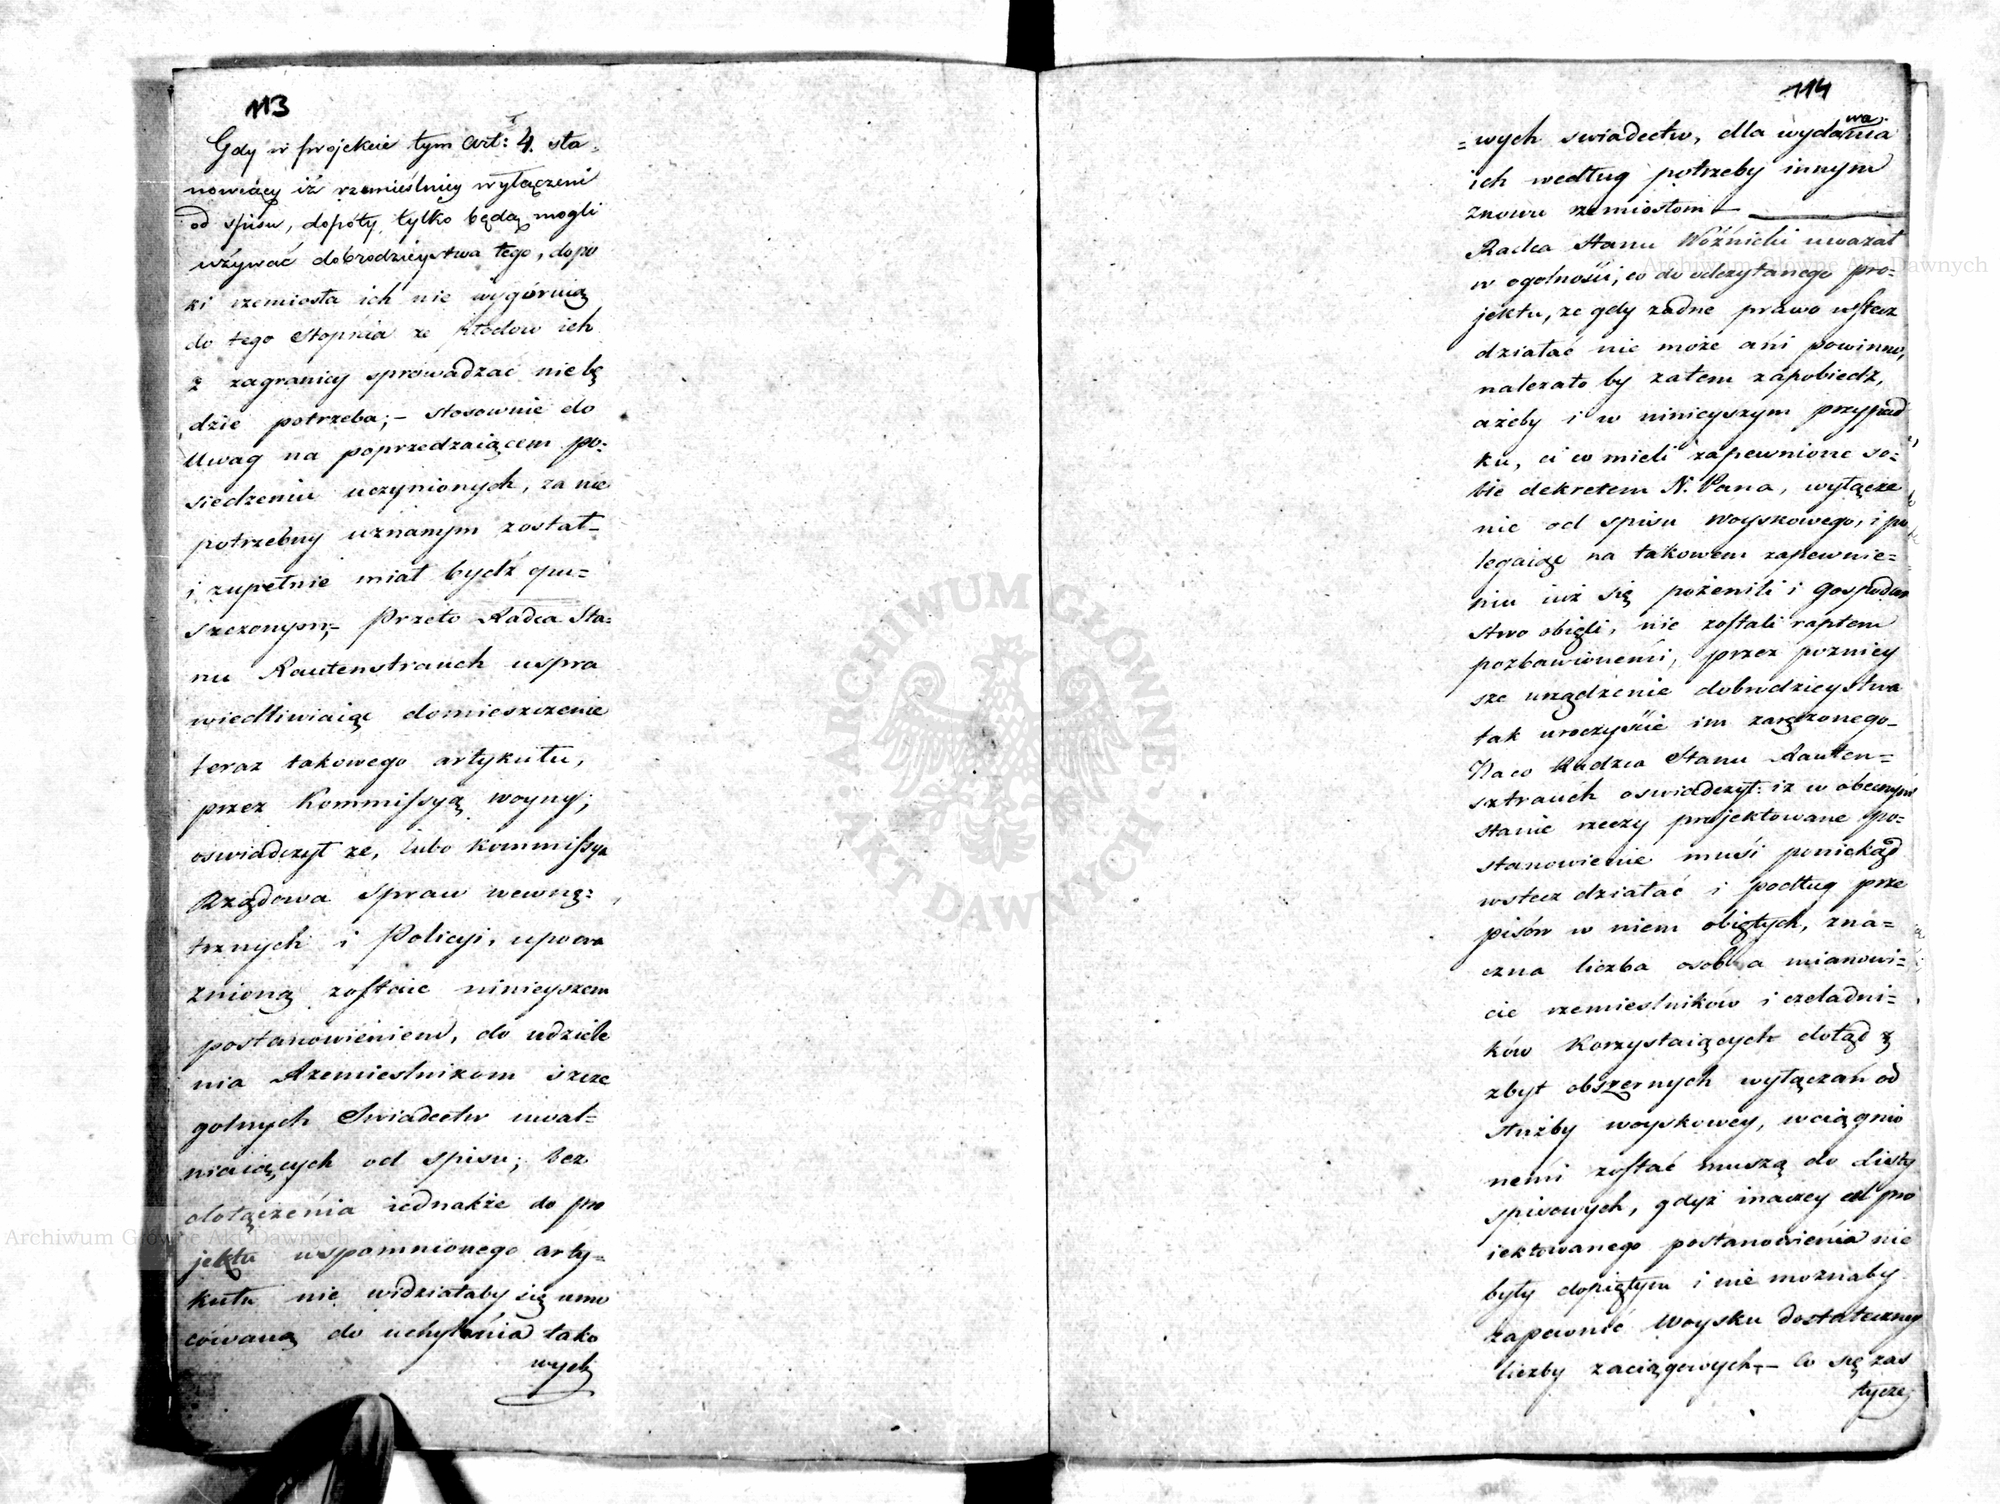 113
Gdy w projekcie tym art: 4. sta-
nowiący iż rzemieślnicy wyłączeni
od spisu, dopóty tylko będą mogli
używać dobrodzieystwa tego, dopo
ki rzemiosła ich nie wygóruią
do tego stopnia ze płodow ich
z zagranicy sprowadzać nie bę
dzie potrzeba; – stosownie do
Uwag na poprzedzaiącem po-
siedzeniu uczynionych, za nie
potrzebny uznanym został –
i zupełnie miał bydź opu=
szczonym; – Przeto Radca Sta=
nu Rautenstrauch uspra
wiedliwiaiąc domieszczenie
teraz takowego artykułu,
przez Kommissyą woyny;
oswiadczył ze, lubo Kommissya
Rządowa Spraw wewnę=
trznych i Policyi, upowa
żnioną zostaie ninieyszem
postanowieniem, do udziele
nia Rzemieslnikom szcze
golnych Swiadectw uwal=
niaiących od spisu; bez
dołączenia iednakże do pro
jektu wspomnionego arty=
kułu nie widziałaby się umo
cowaną do uchylenia tako
wych
114
=wych swiadectw, dla wydawa.nia
ich według potrzeby innym
znowu rzemiosłom –
Radca Stanu Woźnicki uwazał
w ogolności, co do odczytanego pro=
jektu, ze gdy zadne prawo wstecz
działać nie może ani powinno,
nalezało by zatem zapobiedz,
ażeby i w ninieyszym przypad
ku, ci co mieli zapewnione so=
bie dekretem N. Pana, wyłącze
nie od spisu woyskowego, i po
legaiąc na takowem zapewnie=
niu iuż się pożenili i gospodar
stwo obięli, nie zostali raptem
pozbawionemi, przez pozniey
sze urządzenie dobrodzieystwa
tak uroczyście im zaręczonego –
Na co Radzca Stanu Rauten=
sztrauch oswiadczył: iz w obecnym
stanie rzeczy projektowane po=
stanowienie musi poniekąd
wstecz działać i podług prze
pisów w niem obiętych, zna=
czna liczba osob a mianowi=
cie rzemieslników i czeladni=
ków Korzystaiących dotąd z
zbyt obszernych wyłączań od
służby woyskowey, wciągnio
nemi zostać muszą do Listy
spisowych, gdyż inaczey cel pro
iektowanego postanowienia nie
były dopiętym i nie moznaby
zapewnić Woysku dostateczney
liczby zaciągowych – Co się zas
tycze
Archiwum Główne Akt Dawnych
Archiwum Główne Akt Dawnych
ARCHIWUM GŁÓWNE
AKT DAWNYCH